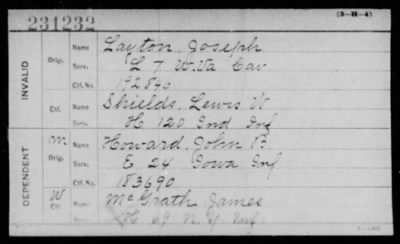 231232
(3-H-4)
INVALID
Orig. Name Layton, Joseph
Serv. L 7 W. Va Cav
Ctf. No. 192890
Ctf. Name Shields, Lewis W
Serv. H 120 Ind Inf
DEPENDENT
M Orig. Name Howard, John
Serv. E 24 Iowa Inf
Ctf. No. 183690
W Ctf. Name McGrath James
Serv. 69 N. Y. Inf